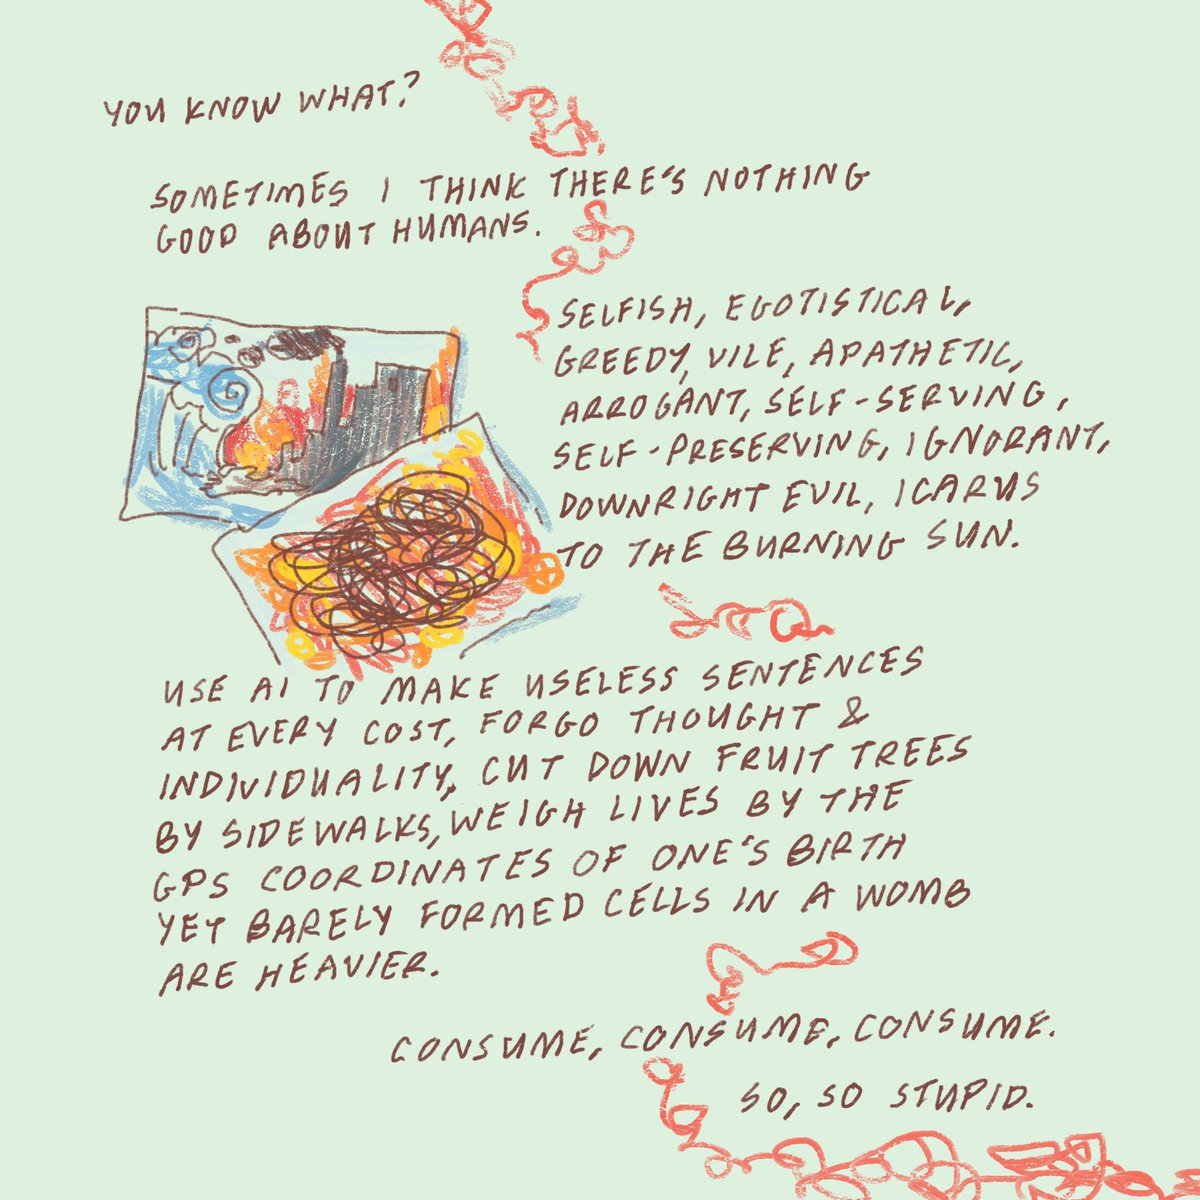 YOU KNOW WHAT?
SOMETIMES I THINK THERE'S NOTHING
GOOD ABOUT HUMANS.
SELFISH, EGOTISTICAL,
GREEDY, VILE, APATHETIC,
ARROGANT, SELF-SERVING,
SELF-PRESERVING, IGNORANT,
DOWNRIGHT EVIL, ICARUS
TO THE BURNING SUN.
USE AI TO MAKE USELESS SENTENCES
AT EVERY COST, FORGO THOUGHT &
INDIVIDUALITY, CUT DOWN FRUIT TREES
BY SIDEWALKS, WEIGH LIVES BY THE
GPS COORDINATES OF ONE'S BIRTH
YET BARELY FORMED CELLS IN A WOMB
ARE HEAVIER.
CONSUME, CONSUME, CONSUME.
SO, SO STUPID.